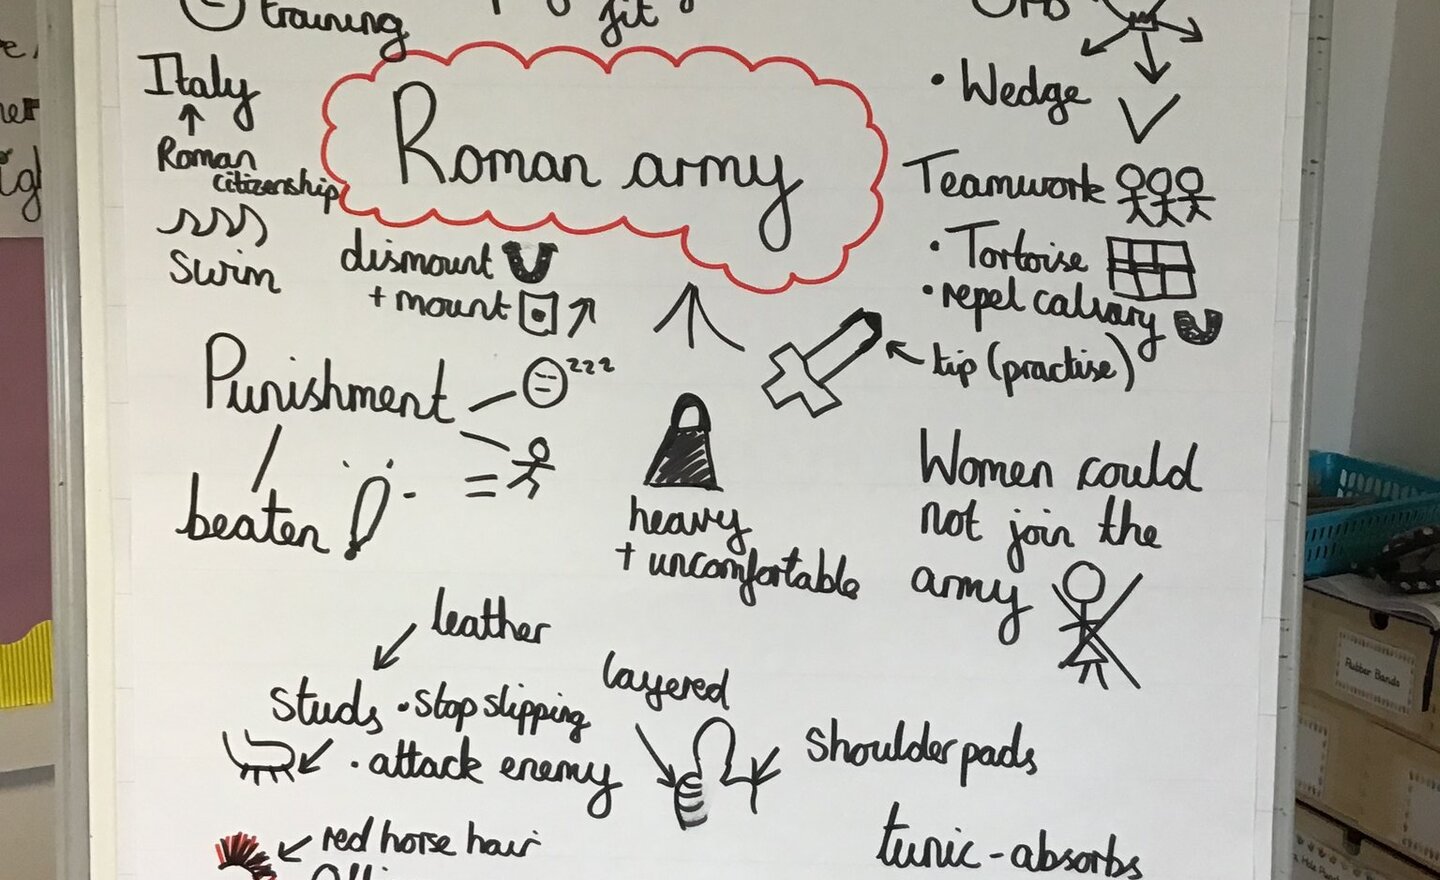 training
fit
Italy
Roman
citizenship
swim
Roman army
• Wedge
Teamwork
• Tortoise
• repel calvary
tip (practise)
dismount
+ mount
Punishment
zzz
beaten
heavy
+ uncomfortable
Women could
not join the
army
leather
studs • stop slipping
• attack enemy
layered
shoulder pads
red horse hair
tunic - absorbs
Rubber Bands